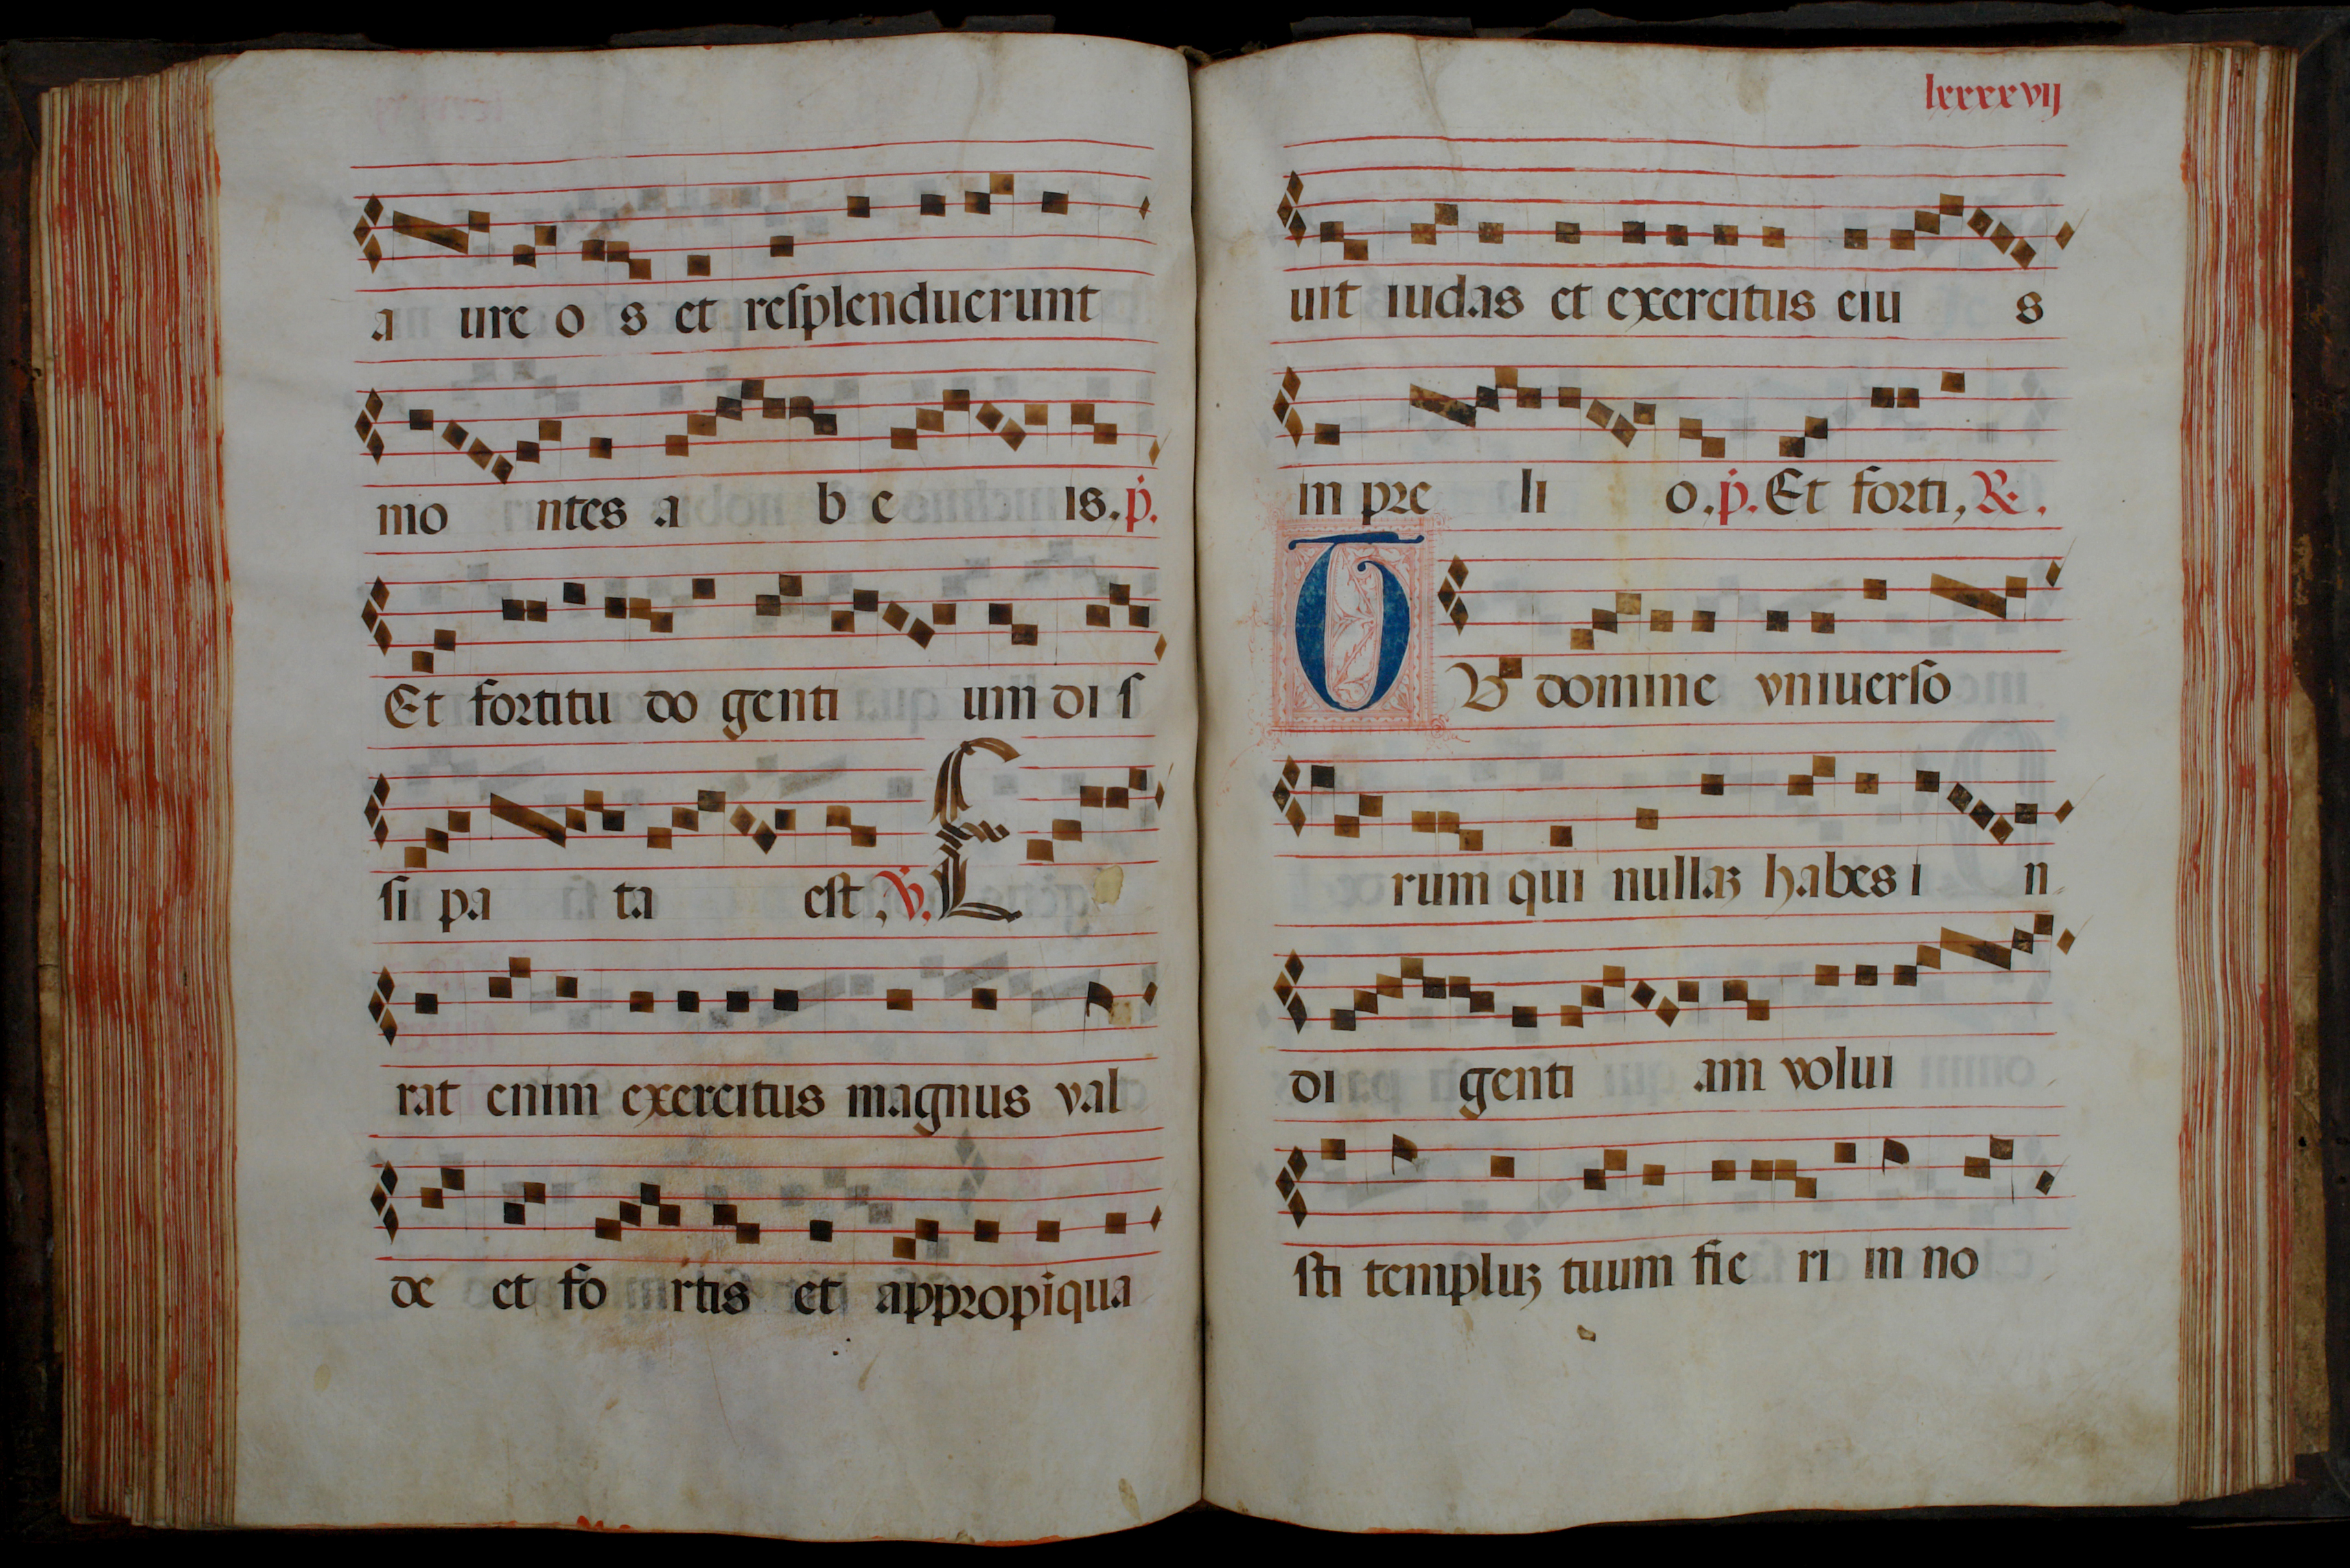 a ure o s et resplenduerunt
mo ntes a b e is. p.
Et fortitu do genti um di s
si pa ta est, V. E
rat enim exercitus magnus val
de et fo rtis et appropiqua
lxxxxvij
uit iudas et exercitus eiu s
in pre li o. p. Et forti, R.
T V domine vniuerso
rum qui nullaz habes i n
di genti am volui
sti templuz tuum fie ri in no